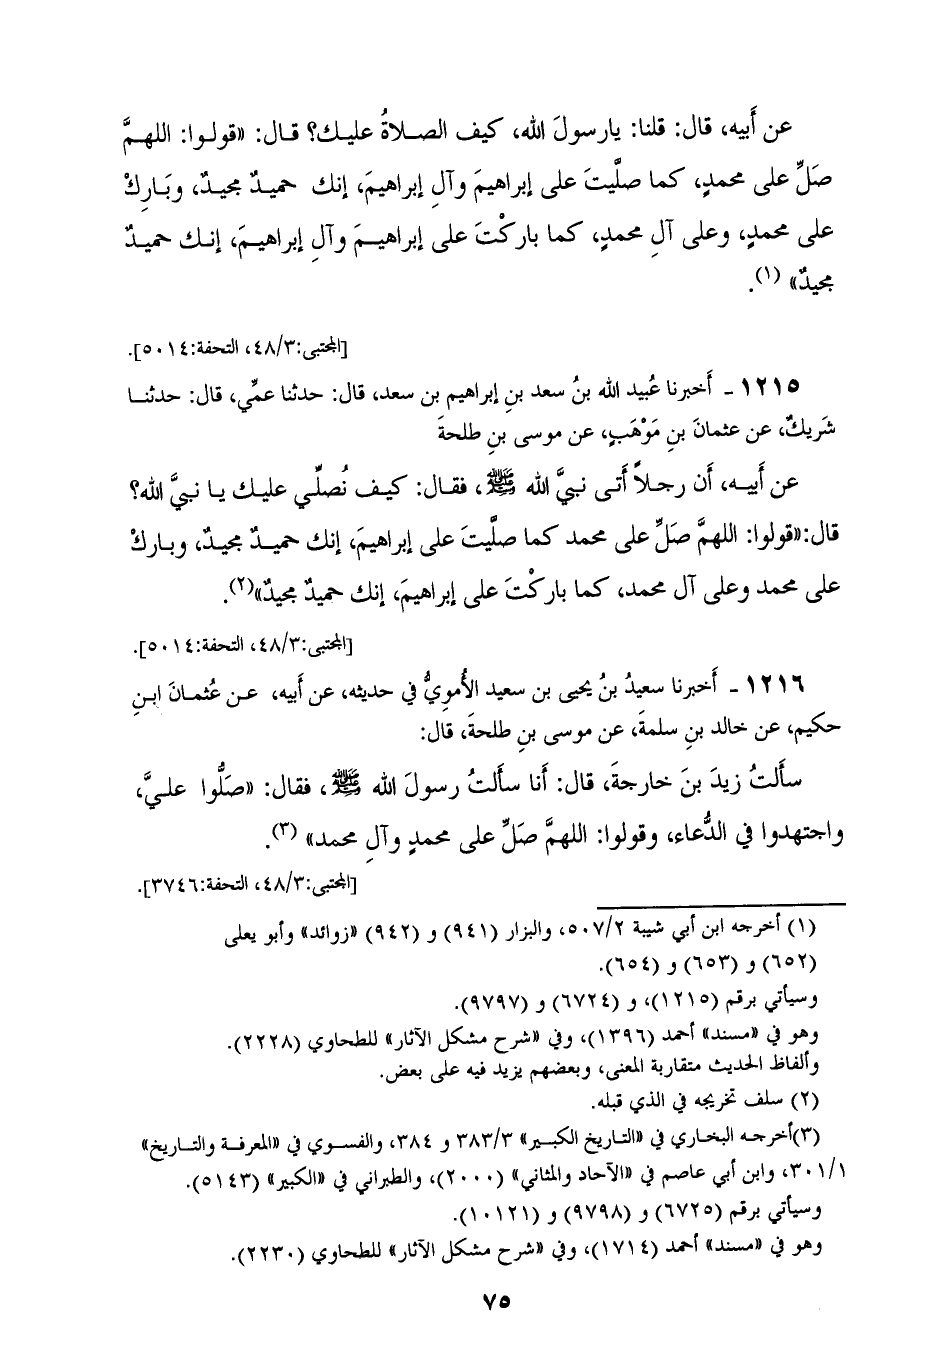 عن أَبيه، قال: قلنا: يارسولَ الله، كيف الصلاةُ عليك؟ قال: «قولوا: اللهمَّ
صَلِّ على محمدٍ، كما صلَّيتَ على إبراهيمَ وآلِ إبراهيمَ، إنك حميدٌ مجيدٌ، وبَارِكْ
على محمدٍ، وعلى آلِ محمدٍ، كما باركْتَ على إبراهيمَ وآلِ إبراهيمَ، إنك حميدٌ
مجيدٌ» (١).
[المجتبى:٤٨/٣، التحفة:٥٠١٤].
١٢١٥ - أَخبرنا عُبيد الله بنُ سعد بنِ إبراهيم بن سعد، قال: حدثنا عمِّي، قال: حدثنا
شَريكٌ، عن عثمانَ بنِ مَوْهَبٍ، عن موسى بنِ طلحةَ
عن أَبيه، أَن رجلاً أَتى نبيَّ الله ﷺ، فقال: كيف نُصلِّي عليك يا نبيَّ الله؟
قال:«قولوا: اللهمَّ صَلِّ على محمد كما صلَّيتَ على إبراهيمَ، إنك حميدٌ مجيدٌ، وباركْ
على محمد وعلى آل محمد، كما باركْتَ على إبراهيمَ، إنك حميدٌ مجيدٌ»(٢).
[المجتبى:٤٨/٣، التحفة:٥٠١٤].
١٢١٦ - أَخبرنا سعيدُ بنُ يحيى بن سعيد الأُمويُّ في حديثه، عن أَبيه، عن عُثمانَ ابنِ
حكيم، عن خالد بنِ سلمةَ، عن موسى بنِ طلحةَ، قال:
سأَلتُ زيدَ بنَ خارجةَ، قال: أَنا سأَلتُ رسولَ الله ﷺ، فقال: «صَلُّوا عليَّ،
واجتهدوا في الدُّعاء، وقولوا: اللهمَّ صَلِّ على محمدٍ وآلِ محمد» (٣).
[المجتبى:٤٨/٣، التحفة:٣٧٤٦].
(١) أخرجه ابن أبي شيبة ٥٠٧/٢، والبزار (٩٤١) و (٩٤٢) «زوائد» وأبو يعلى
(٦٥٢) و (٦٥٣) و (٦٥٤).
وسيأتي برقم (١٢١٥)، و (٦٧٢٤) و (٩٧٩٧).
وهو في «مسند» أحمد (١٣٩٦)، وفي «شرح مشكل الآثار» للطحاوي (٢٢٢٨).
وألفاظ الحديث متقاربة المعنى، وبعضهم يزيد فيه على بعض.
(٢) سلف تخريجه في الذي قبله.
(٣)أخرجه البخاري في «التاريخ الكبير» ٣٨٣/٣ و ٣٨٤، والفسوي في «المعرفة والتاريخ»
٣٠١/١، وابن أبي عاصم في «الآحاد والمثاني» (٢٠٠٠)، والطبراني في «الكبير» (٥١٤٣).
وسيأتي برقم (٦٧٢٥) و (٩٧٩٨) و (١٠١٢١).
وهو في «مسند» أحمد (١٧١٤)، وفي «شرح مشكل الآثار» للطحاوي (٢٢٣٠).
٧٥